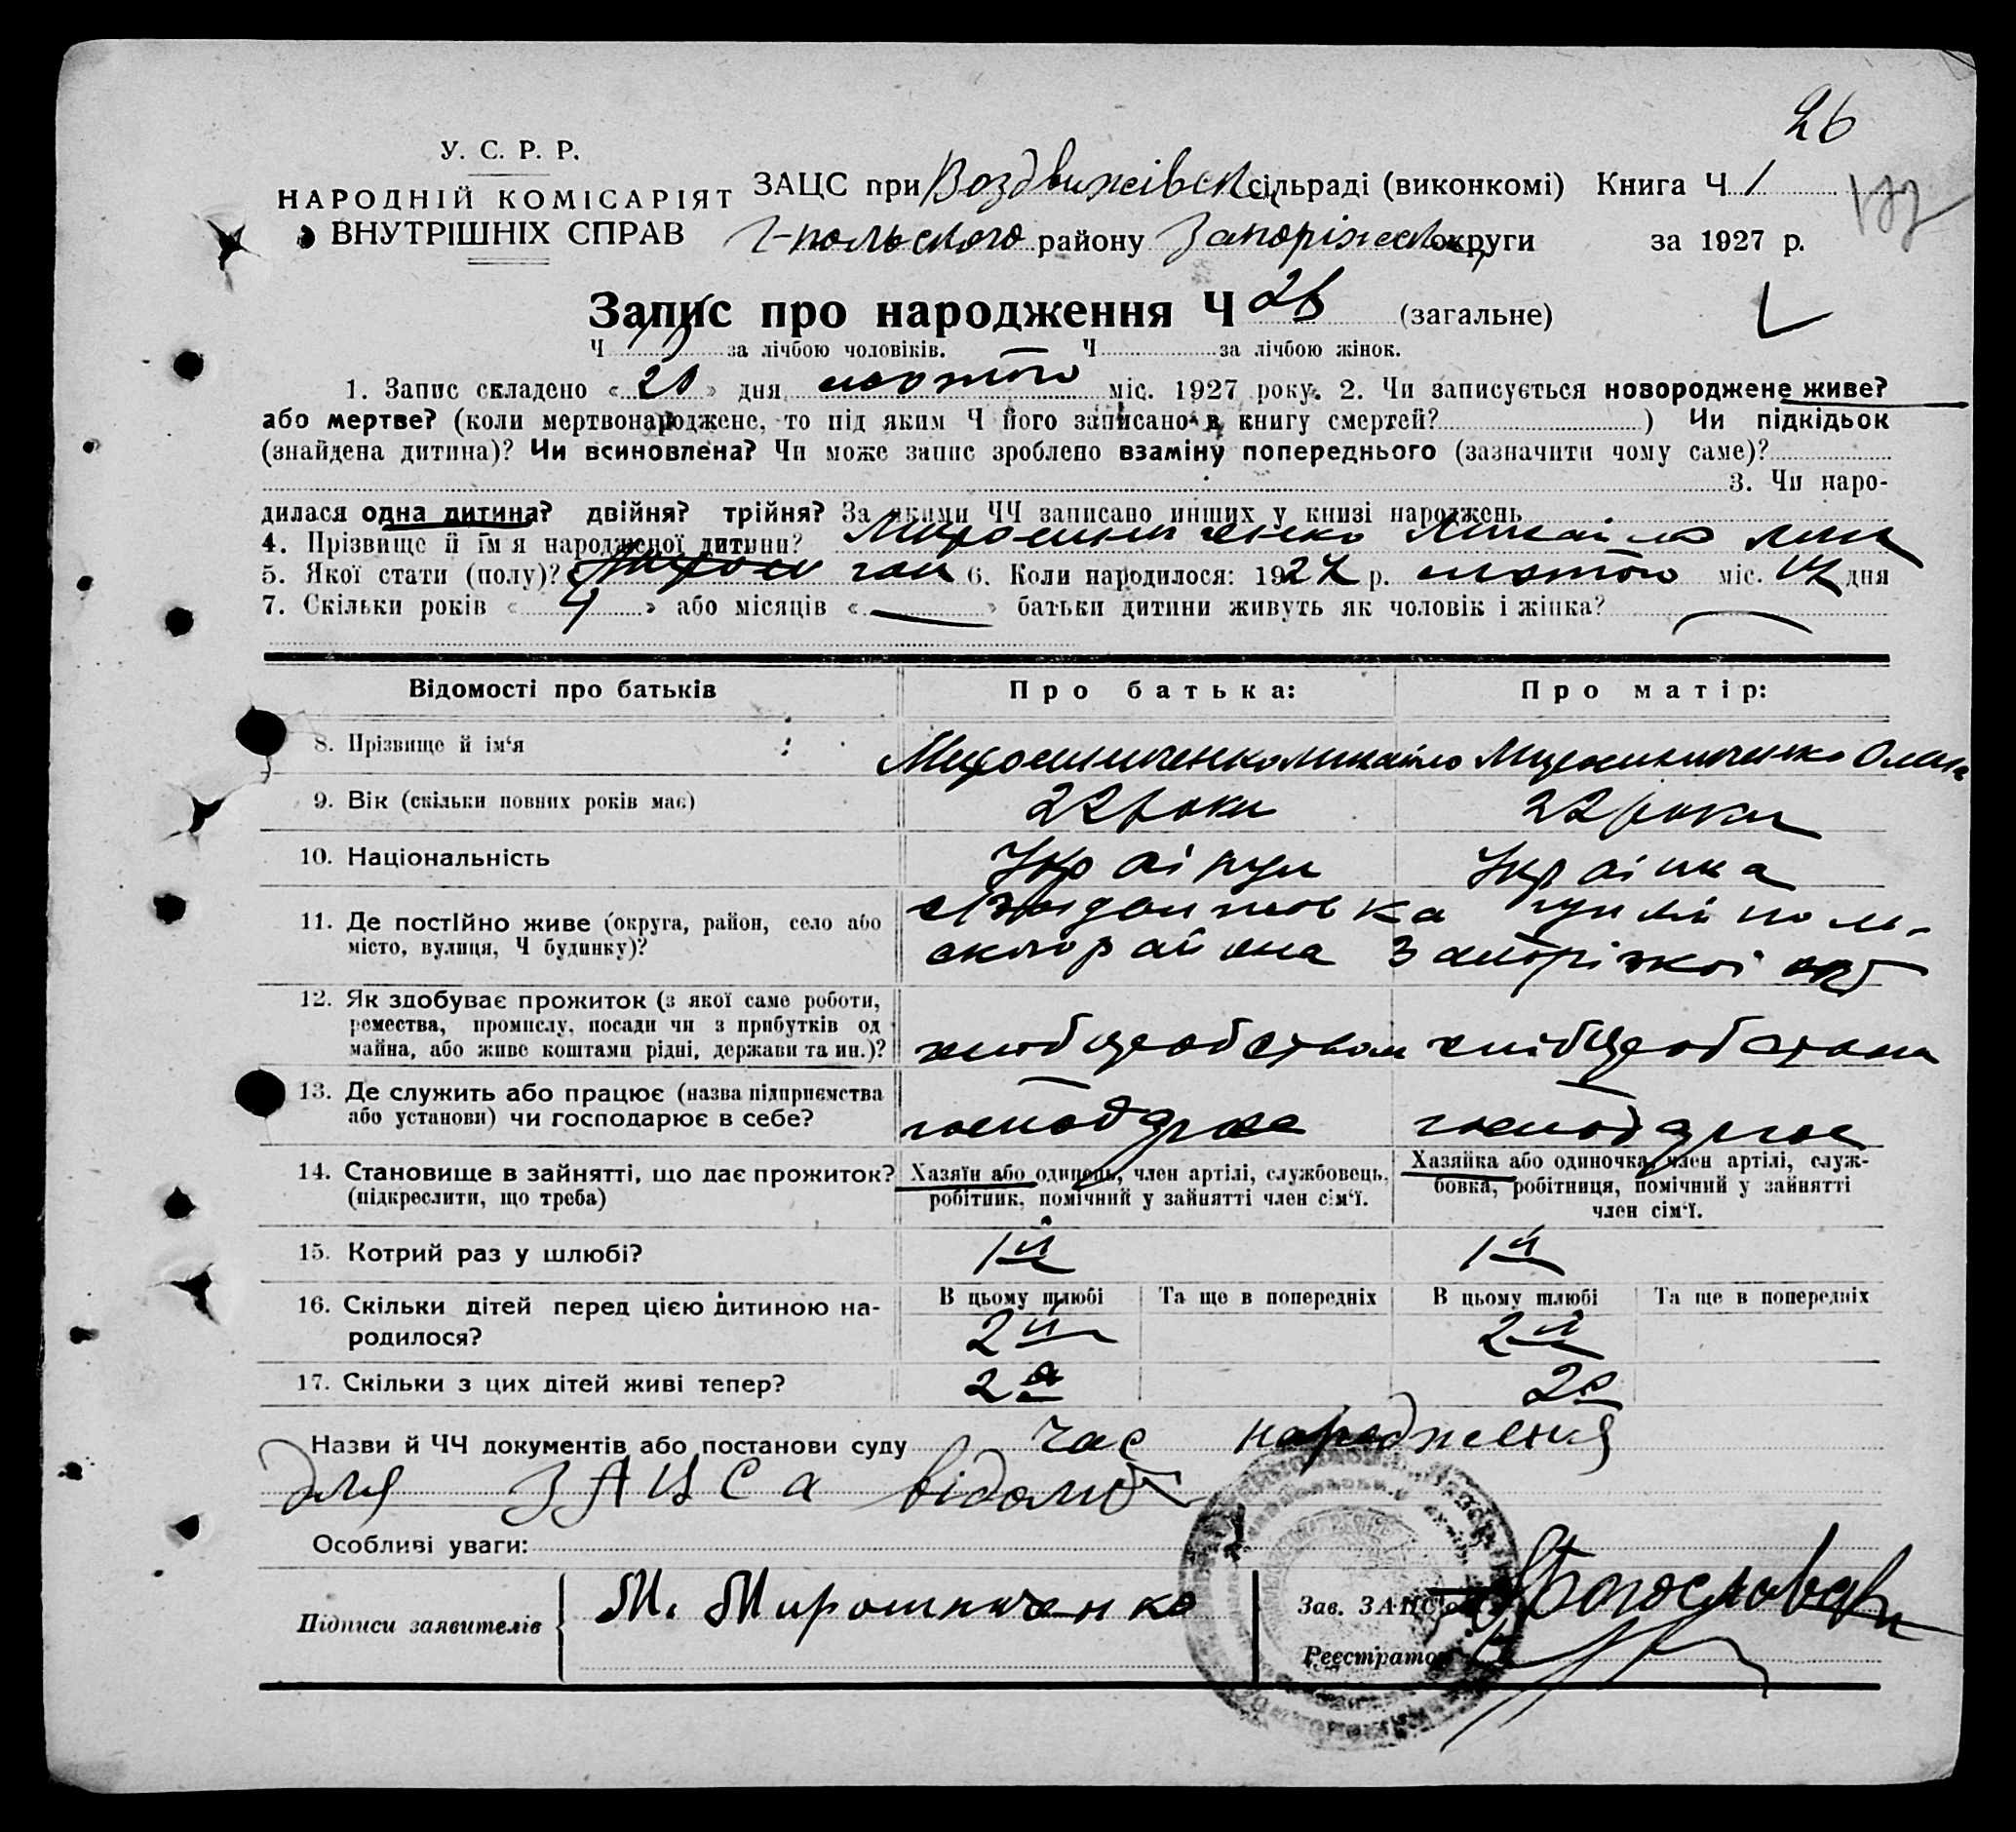 26
У. С. Р. Р.
НАРОДНІЙ КОМІСАРІЯТ
ВНУТРІШНІХ СПРАВ
ЗАЦС при Воздвижівск сільраді (виконкомі) Книга Ч 1
Г-польского району Запоріжськ округи за 1927 р.
Запис про народження Ч 26 (загальне)
Ч за лічбою чоловіків. — Ч за лічбою жінок.
1. Запис складено « 20 » дня лютого міс. 1927 року. 2. Чи записується новороджене живе?
або мертве? (коли мертвонароджене, то під яким Ч його записано в книгу смертей? ) Чи підкідьок
(знайдена дитина)? Чи всиновлена? Чи може запис зроблено взаміну попереднього (зазначити чому саме)?
3. Чи наро-
дилася одна дитина? двійня? трійня? За якими ЧЧ записано инших у книзі народжень
4. Прізвище й ім'я народженої дитини? Мирошниченко Михайло
5. Якої стати (полу)? 6. Коли народилося: 1927 р. лютого міс. дня
7. Скільки років « 4 » або місяців « — » батьки дитини живуть як чоловік і жінка? —
Відомості про батьків Про батька: Про матір:
8. Прізвище й ім'я Мирошниченко Михайло Мирошниченко
9. Вік (скільки повних років має) 22 роки 22 роки
10. Національність Українка
11. Де постійно живе (округа, район, село або
місто, вулиця, Ч будинку)?
района Запоріжкоі окр
12. Як здобуває прожиток (з якої саме роботи,
ремества, промислу, посади чи з прибутків од
майна, або живе коштами рідні, держави та ин.)?
13. Де служить або працює (назва підприємства
або установи) чи господарює в себе? господарює господарює
14. Становище в зайнятті, що дає прожиток?
(підкреслити, що треба)
Хазяїн або одинець, член артілі, службовець,
робітник, помічний у зайнятті член сім'ї.
Хазяйка або одиночка, член артілі, служ-
бовка, робітниця, помічний у зайнятті
член сім'ї.
15. Котрий раз у шлюбі? 1й 1й
16. Скільки дітей перед цією дитиною на-
родилося?
В цьому шлюбі Та ще в попередніх В цьому шлюбі Та ще в попередніх
2й 2й
17. Скільки з цих дітей живі тепер? 2 2
Назви й ЧЧ документів або постанови суду час народження
для ЗАЦСа відомо
Особливі уваги:
Підписи заявителів М. Мирошниченко
Зав. ЗАЦС'ом
Реєстратор